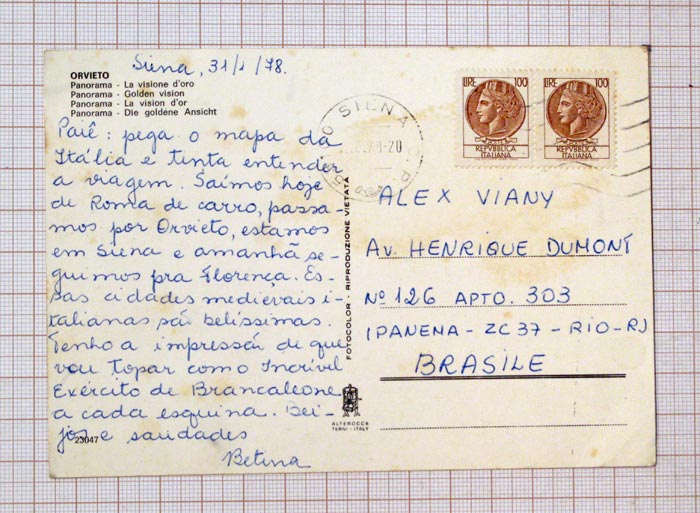 Siena, 31/1/78.
ORVIETO
Panorama - La visione d'oro
Panorama - Golden vision
Panorama - La vision d'or
Panorama - Die goldene Ansicht
Paiê: pega o mapa da
Itália e tenta entender
a viagem. Saímos hoje
de Roma de carro, passa-
mos por Orvieto, estamos
em Siena e amanhã se-
guimos pra Florença. Es-
sas cidades medievais i-
talianas são belíssimas.
Tenho a impressão de que
vou topar com o Incrível
Exército de Brancaleone
a cada esquina. Bei-
jos e saudades
Betina
23047
FOTOCOLOR - RIPRODUZIONE VIETATA
ALTEROCCA
TERNI - ITALY
SIENA
78-20
LIRE 100
REPVBBLICA
ITALIANA
LIRE 100
REPVBBLICA
ITALIANA
ALEX VIANY
AV. HENRIQUE DUMONT
Nº 126 APTO. 303
IPANENA - ZC 37 - RIO - RJ
BRASILE